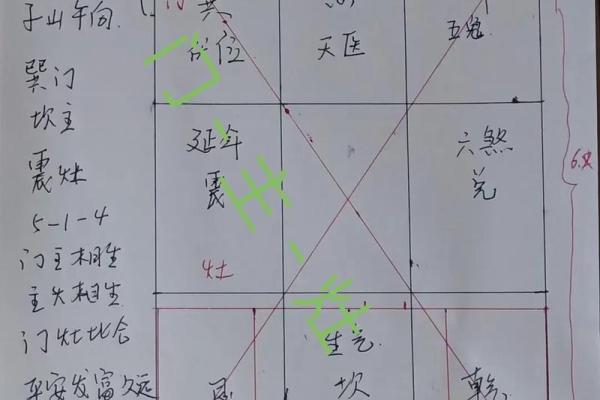 子山午向.
巽门
坎主
震灶
5-1-4
门主相生
主灶相生
门灶比合
平安发富久远
门
伏位
天医
五鬼
延年
震
灶
六煞
兑
生气.
坎
艮
乾.
门-主-灶